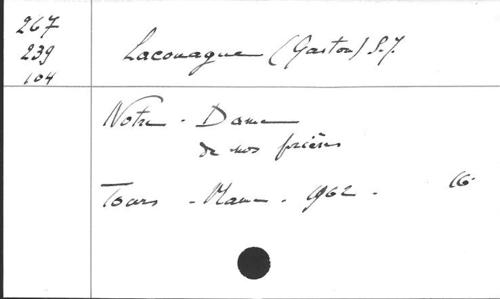 267
239
104
Lacouague (Gaston) S.J.
Notre-Dame
de nos prières
Tours - Mame - 1962 - 16°